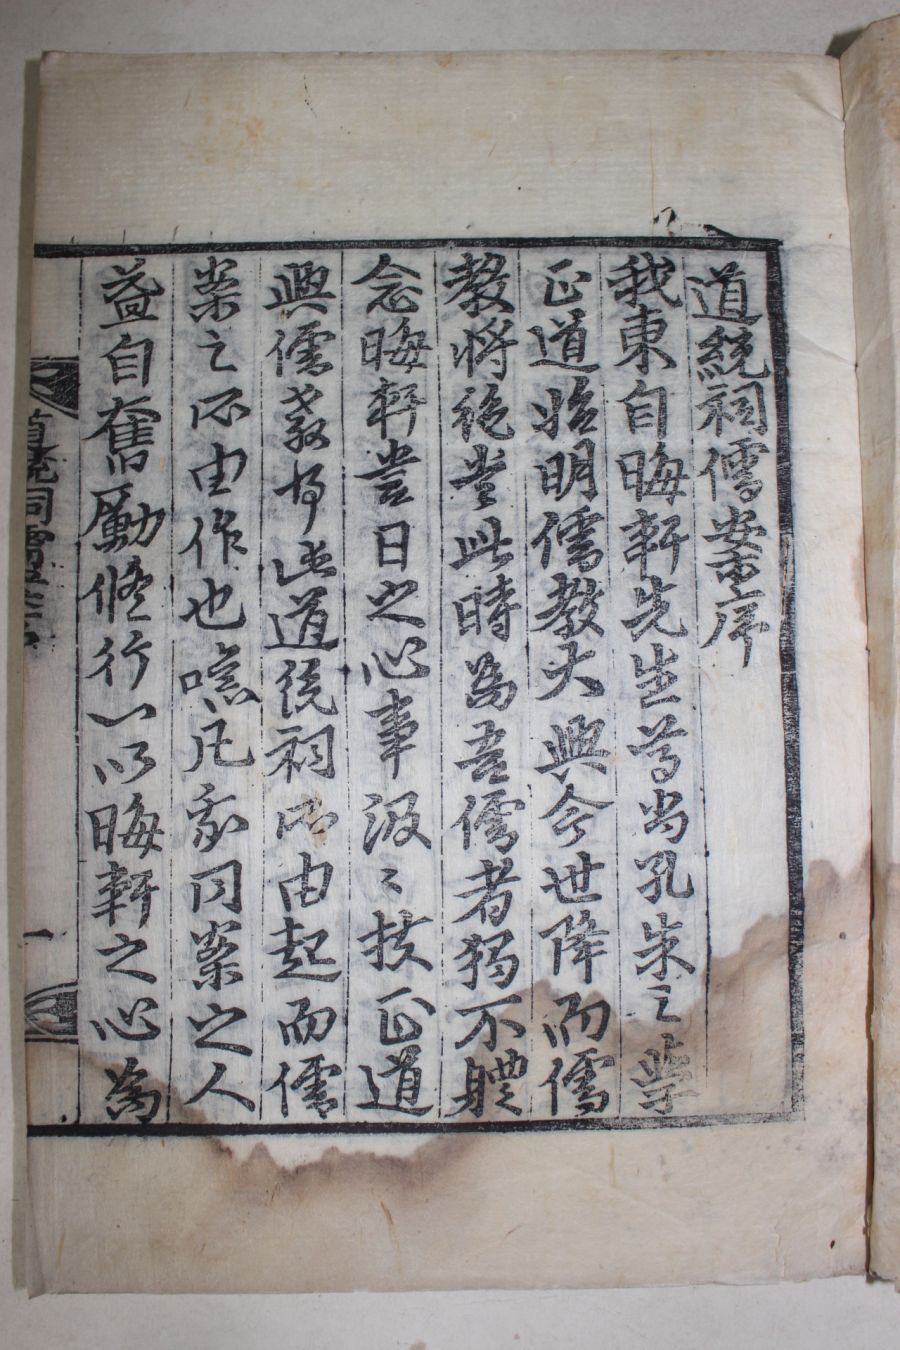 道統祠儒案序
我東自晦軒先生尊尚孔朱之學
正道始明儒教大興今世降而儒
教將絶當此時為吾儒者獨不軆
念晦軒當日之心事汲〻扶正道
興儒教乎此道統祠所由起而儒
案之所由作也噫凡我同案之人
益自奮勵修行一以晦軒之心為
道統祠儒案
一